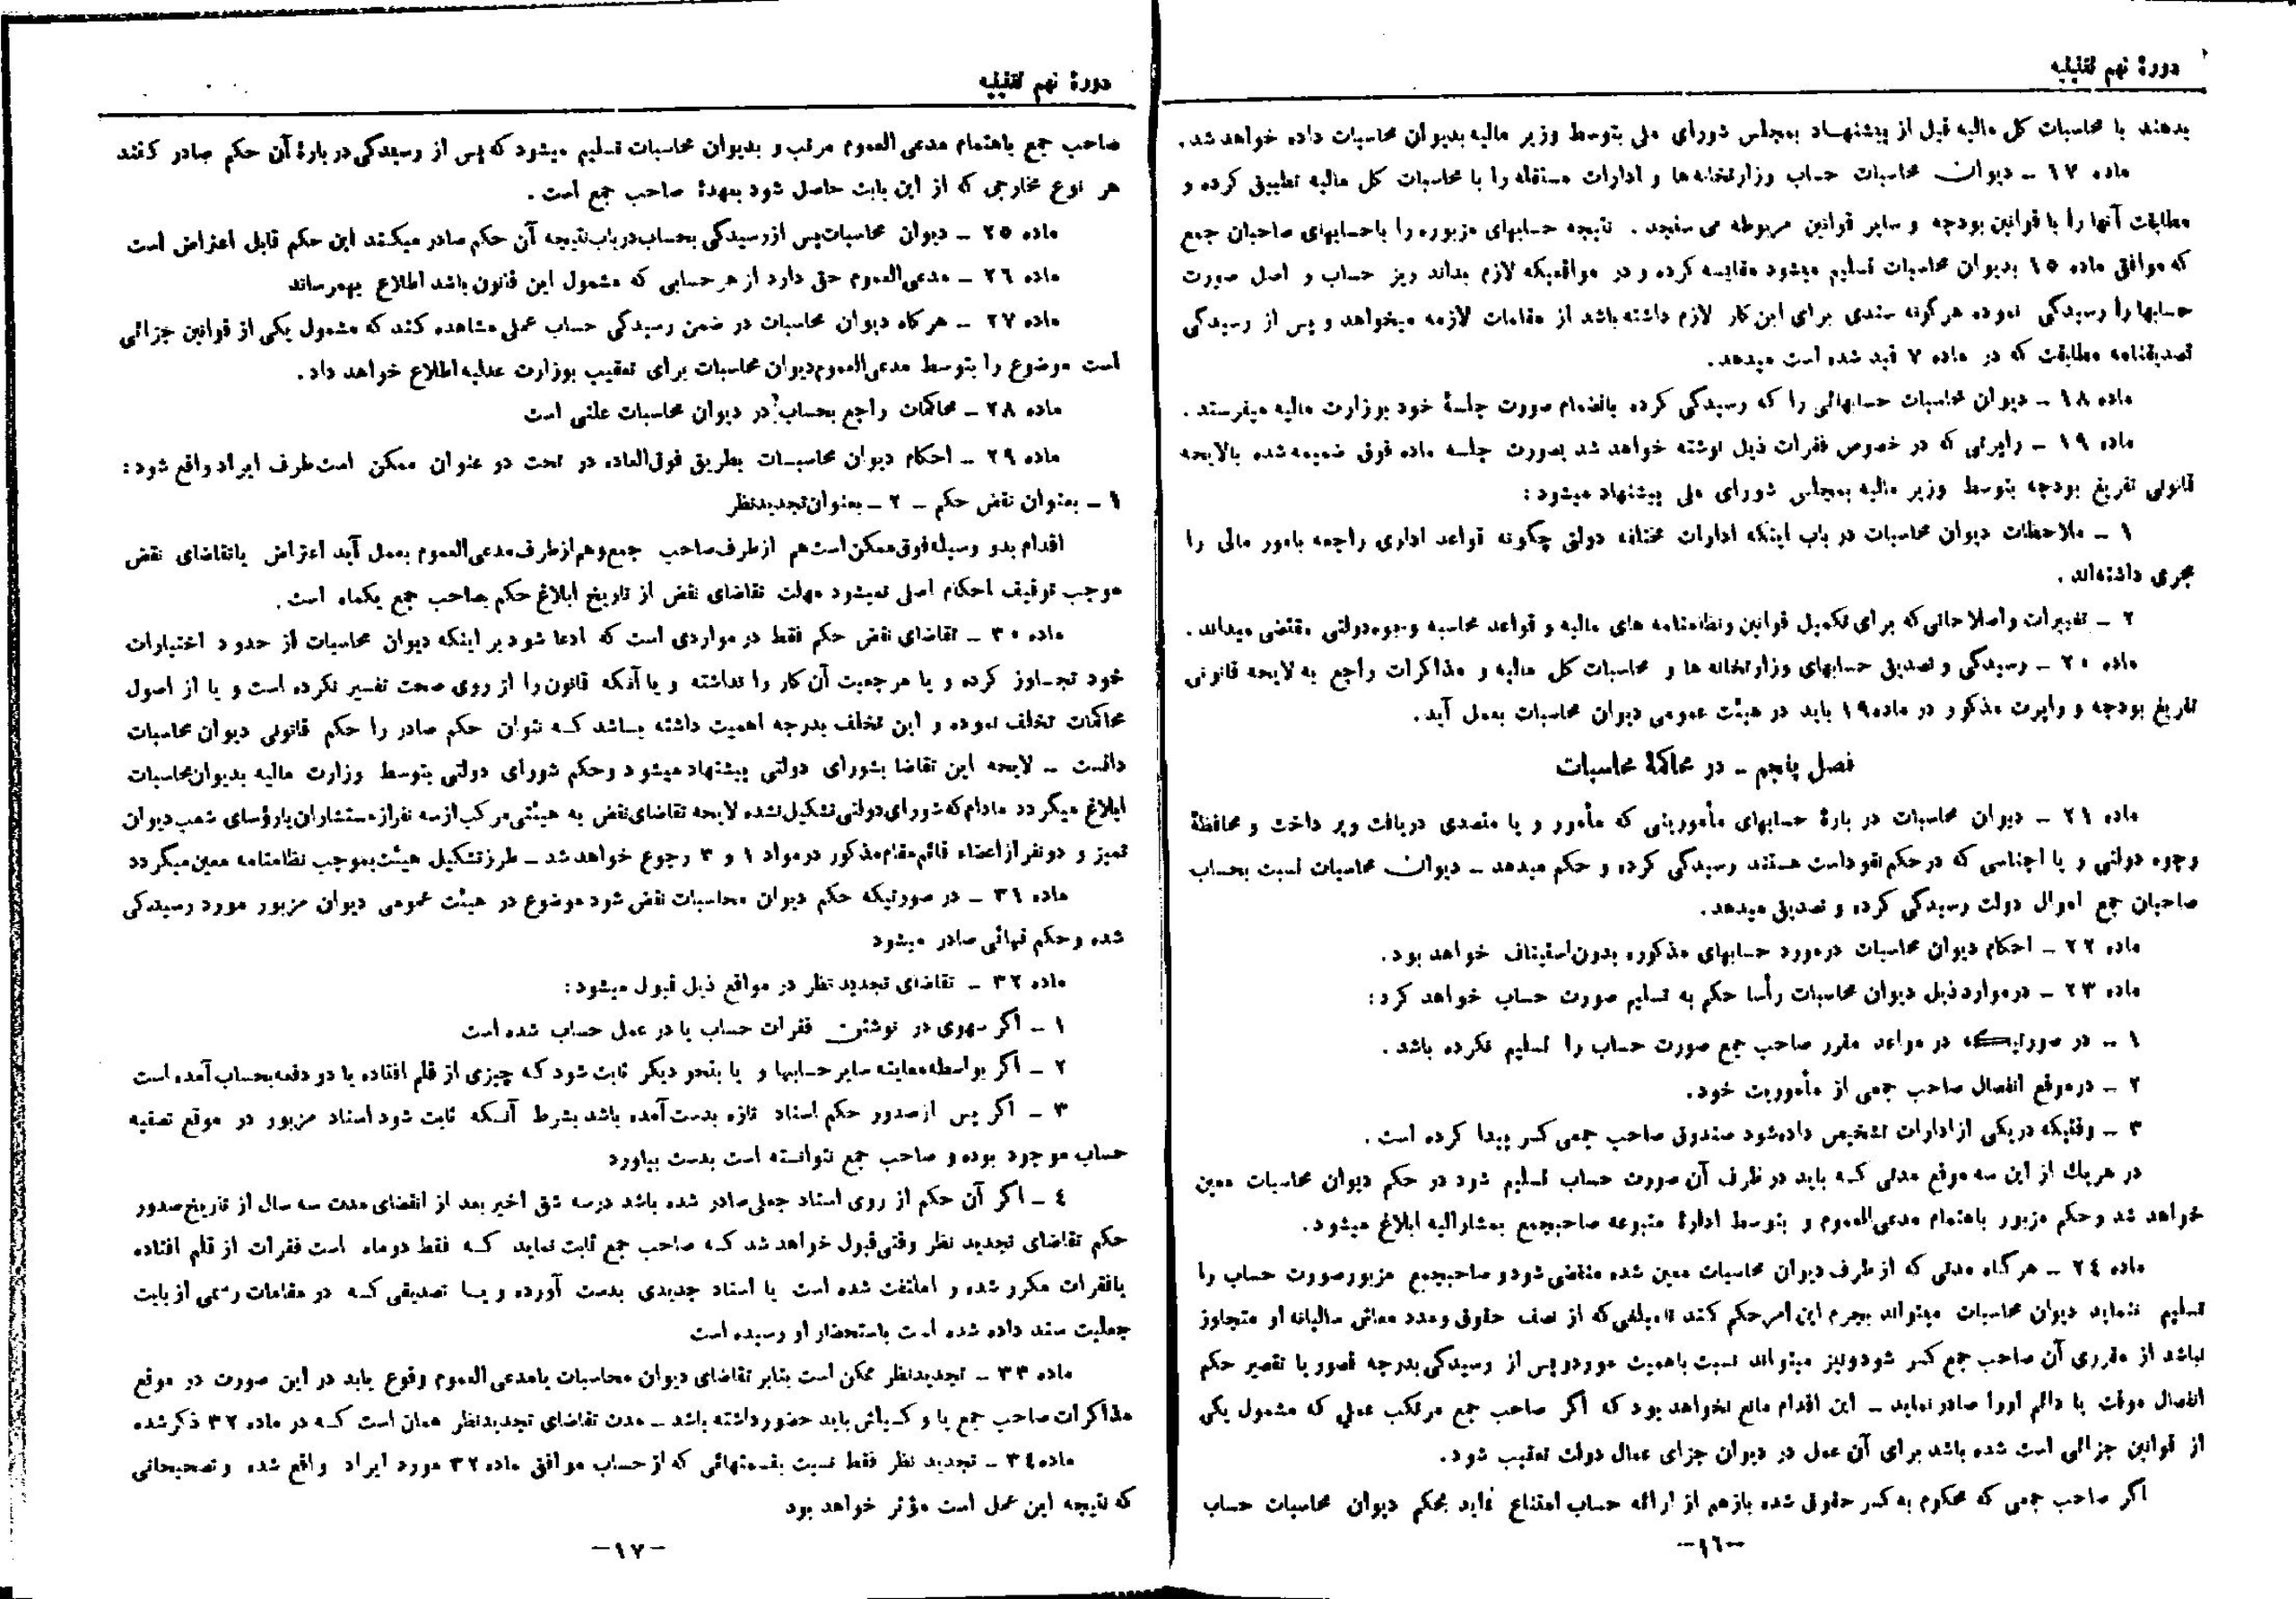 دورهٔ نهم تقنینیه
بدهند با محاسبات کل مالیه قبل از پیشنهاد بمجلس شورای ملی بتوسط وزیر مالیه بدیوان محاسبات داده خواهد شد.
ماده ۱۷ ـ دیوان محاسبات حساب وزارتخانه‌ها و ادارات مستقله را با محاسبات کل مالیه تطبیق کرده و
مطابقت آنها را با قوانین بودجه و سایر قوانین مربوطه می سنجد . نتیجه حسابهای مزبوره را باحسابهای صاحبان جمع
که موافق ماده ۱۵ بدیوان محاسبات تسلیم میشود مقایسه کرده و در مواقعیکه لازم بداند ریز حساب و اصل صورت
حسابها را رسیدگی نموده هرگونه سندی برای این کار لازم داشته باشد از مقامات لازمه میخواهد و پس از رسیدگی
تصدیقنامه مطابقت که در ماده ۷ قید شده است میدهد.
ماده ۱۸ ـ دیوان محاسبات حسابهائی را که رسیدگی کرده بانضمام صورت جلسهٔ خود بوزارت مالیه میفرستد .
ماده ۱۹ ـ راپرتی که در خصوص فقرات ذیل نوشته خواهد شد بصورت جلسه ماده فوق ضمیمه شده بالایحه
قانونی تفریغ بودجه بتوسط وزیر مالیه بمجلس شورای ملی پیشنهاد میشود :
۱ ـ ملاحظات دیوان محاسبات در باب اینکه ادارات مختلفه دولتی چگونه قواعد اداری راجعه بامور مالی را
مجری داشته‌اند .
۲ ـ تغییرات و اصلاحاتی که برای تکمیل قوانین و نظامنامه های مالیه و قواعد محاسبه وجوه دولتی مقتضی میداند .
ماده ۲۰ ـ رسیدگی و تصدیق حسابهای وزارتخانه ها و محاسبات کل مالیه و مذاکرات راجع به لایحه قانونی
تفریغ بودجه و راپرت مذکور در ماده ۱۹ باید در هیئت عمومی دیوان محاسبات بعمل آید .
فصل پنجم ـ در محاکمهٔ محاسبات
ماده ۲۱ ـ دیوان محاسبات در بارهٔ حسابهای مأمورینی که مأمور و یا متصدی دریافت و پرداخت و محافظهٔ
وجوه دولتی و یا اجناسی که در حکم نقود است هستند رسیدگی کرده و حکم میدهد ـ دیوان محاسبات نسبت بحساب
صاحبان جمع اموال دولت رسیدگی کرده و تصدیق میدهد.
ماده ۲۲ ـ احکام دیوان محاسبات درمورد حسابهای مذکوره بدون استیناف خواهد بود.
ماده ۲۳ ـ درموارد ذیل دیوان محاسبات رأسا حکم به تسلیم صورت حساب خواهد کرد :
۱ ـ در صورتیکه در مواعد مقرر صاحب جمع صورت حساب را تسلیم نکرده باشد .
۲ ـ درموقع انفصال صاحب جمعی از مأموریت خود.
۳ ـ وقتیکه دریکی از ادارات تشخیص داده‌شود صندوق صاحب جمعی کسر پیدا کرده است .
در هریك از این سه موقع مدتی که باید در ظرف آن صورت حساب تسلیم شود در حکم دیوان محاسبات معین
خواهد شد و حکم مزبور باهتمام مدعی‌العموم و بتوسط ادارهٔ متبوعه صاحبجمع بمشارالیه ابلاغ میشود.
ماده ۲٤ ـ هرگاه مدتی که از طرف دیوان محاسبات معین شده منقضی شود و صاحبجمع مزبور صورت حساب را
تسلیم ننماید دیوان محاسبات میتواند بجرم این امر حکم کند تا مبلغی که از نصف حقوق و مدد معاش سالیانه او متجاوز
نباشد از مقرری آن صاحب جمع کسر شود و نیز میتواند نسبت باهمیت مورد و پس از رسیدگی بدرجه قصور یا تقصیر حکم
انفصال موقت یا دائم او را صادر نماید ـ این اقدام مانع نخواهد بود که اگر صاحب جمع مرتکب عملی که مشمول یکی
از قوانین جزائی است شده باشد برای آن عمل در دیوان جزای عمال دولت تعقیب شود.
اگر صاحب جمعی که محکوم به کسر حقوق شده بازهم از ارائه حساب امتناع نماید بحکم دیوان محاسبات حساب
ـ۱٦ـ
دورهٔ نهم تقنینیه
صاحب جمع باهتمام مدعی العموم مرتب و بدیوان محاسبات تسلیم میشود که پس از رسیدگی در بارهٔ آن حکم صادر کنند
هر نوع مخارجی که از این بابت حاصل شود بعهدهٔ صاحب جمع است .
ماده ۲۵ ـ دیوان محاسبات پس از رسیدگی بحساب درباب نتیجه آن حکم صادر میکند این حکم قابل اعتراض است
ماده ۲٦ ـ مدعی‌العموم حق دارد از هر حسابی که مشمول این قانون باشد اطلاع بهمرساند
ماده ۲۷ ـ هرگاه دیوان محاسبات در ضمن رسیدگی حساب عملی مشاهده کند که مشمول یکی از قوانین جزائی
است موضوع را بتوسط مدعی‌العموم دیوان محاسبات برای تعقیب بوزارت عدلیه اطلاع خواهد داد.
ماده ۲۸ ـ محاکمات راجع بحساب در دیوان محاسبات علنی است
ماده ۲۹ ـ احکام دیوان محاسبات بطریق فوق‌العاده در تحت دو عنوان ممکن است طرف ایراد واقع شود :
۱ ـ بعنوان نقض حکم ـ ۲ ـ بعنوان تجدیدنظر
اقدام بدو وسیله فوق ممکن است هم از طرف صاحب جمع و هم از طرف مدعی‌العموم بعمل آید اعتراض یا تقاضای نقض
موجب توقیف احکام اصلی نمیشود مهلت تقاضای نقض از تاریخ ابلاغ حکم بصاحب جمع یکماه است .
ماده ۳۰ ـ تقاضای نقض حکم فقط در مواردی است که ادعا شود بر اینکه دیوان محاسبات از حدود اختیارات
خود تجاوز کرده و یا مرجعیت آن کار را نداشته و یا آنکه قانون را از روی صحت تفسیر نکرده است و یا از اصول
محاکمات تخلف نموده و این تخلف بدرجه اهمیت داشته باشد که نتوان حکم صادر را حکم قانونی دیوان محاسبات
دانست ـ لایحه این تقاضا بشورای دولتی پیشنهاد میشود و حکم شورای دولتی بتوسط وزارت مالیه بدیوان محاسبات
ابلاغ میگردد مادام که شورای دولتی تشکیل نشده لایحه تقاضای نقض به هیئتی مرکب از سه نفر از مستشاران یا رؤسای شعب دیوان
تمیز و دو نفر از اعضاء قائم مقام مذکور در مواد ۱ و ۳ رجوع خواهد شد ـ طرز تشکیل هیئت بموجب نظامنامه معین میگردد
ماده ۳۱ ـ در صورتیکه حکم دیوان محاسبات نقض شود موضوع در هیئت عمومی دیوان مزبور مورد رسیدگی
شده و حکم نهائی صادر میشود
ماده ۳۲ ـ تقاضای تجدید نظر در مواقع ذیل قبول میشود :
۱ ـ اگر سهوی در نوشتن فقرات حساب یا در عمل حساب شده است
۲ ـ اگر بواسطه معاینه سایر حسابها و یا بنحو دیگر ثابت شود که چیزی از قلم افتاده یا دو دفعه بحساب آمده است
۳ ـ اگر پس از صدور حکم اسناد تازه بدست آمده باشد بشرط آنکه ثابت شود اسناد مزبور در موقع تصفیه
حساب موجود بوده و صاحب جمع نتوانسته است بدست بیاورد
٤ ـ اگر آن حکم از روی اسناد جعلی صادر شده باشد درسه شق اخیر بعد از انقضای مدت سه سال از تاریخ صدور
حکم تقاضای تجدید نظر وقتی قبول خواهد شد که صاحب جمع ثابت نماید که فقط دو ماه است فقرات از قلم افتاده
یا فقرات مکرر شده و املتفت شده است یا اسناد جدیدی بدست آورده و یا تصدیقی که در مقامات رسمی از بابت
جعلیت سند داده شده است باستحضار او رسیده است
ماده ۳۳ ـ تجدیدنظر ممکن است بنابر تقاضای دیوان محاسبات یا مدعی العموم وقوع یابد در این صورت در موقع
مذاکرات صاحب جمع یا وکیلش باید حضور داشته باشد ـ مدت تقاضای تجدیدنظر همان است که در ماده ۳۲ ذکر شده
ماده ۳٤ ـ تجدید نظر فقط نسبت بقسمتهائی که از حساب موافق ماده ۳۲ مورد ایراد واقع شده و تصحیحاتی
که نتیجه این عمل است مؤثر خواهد بود
ـ۱۷ـ